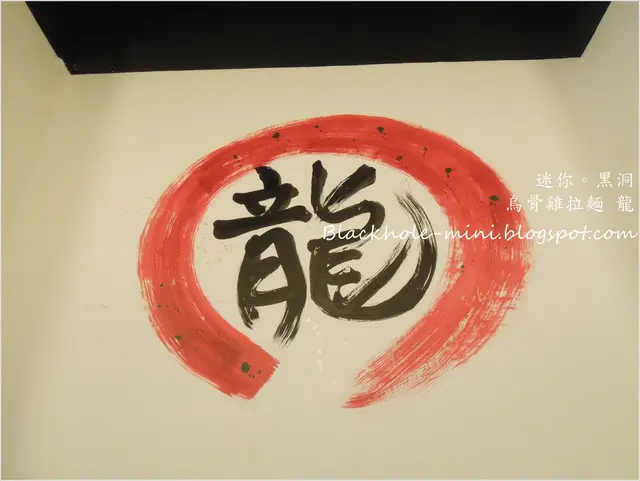 龍
迷你。黑洞
烏骨雞拉麵 龍
Blackhole-mini.blogspot.com